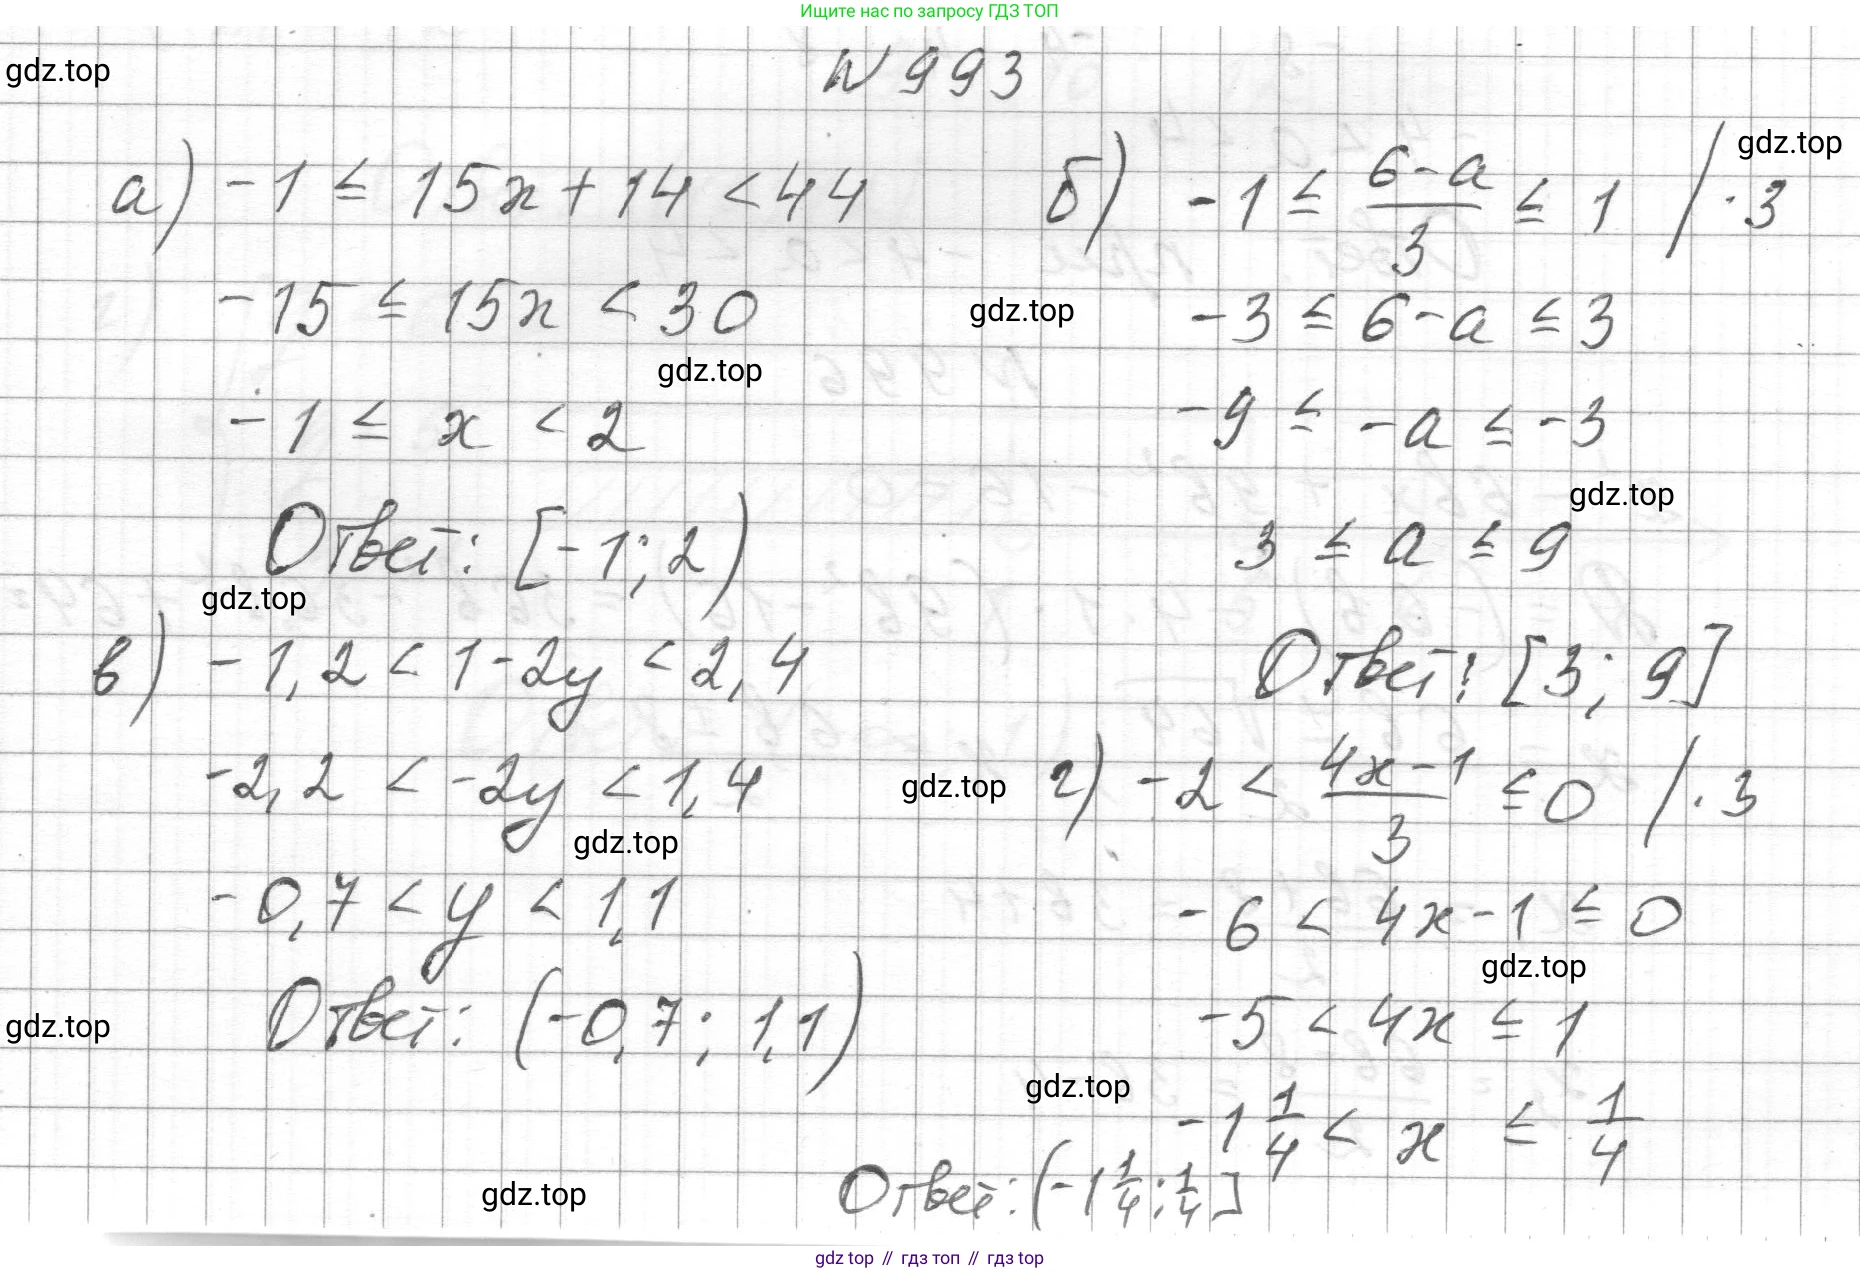 Ищите нас по запросу ГДЗ ТОП
gdz.top
N 993
gdz.top
а) -1 ≤ 15x + 14 < 44
-15 ≤ 15x < 30
gdz.top
-1 ≤ x < 2
Ответ: [-1; 2)
gdz.top
б) -1 ≤ (6-a)/3 ≤ 1 / ·3
gdz.top
-3 ≤ 6-a ≤ 3
-9 ≤ -a ≤ -3
gdz.top
3 ≤ a ≤ 9
Ответ: [3; 9]
в) -1,2 < 1-2y < 2,4
-2,2 < -2y < 1,4
gdz.top
-0,7 < y < 1,1
Ответ: (-0,7; 1,1)
gdz.top
gdz.top
г) -2 < (4x-1)/3 ≤ 0 / ·3
-6 < 4x-1 ≤ 0
gdz.top
-5 < 4x ≤ 1
gdz.top
-1 1/4 < x ≤ 1/4
Ответ: (-1 1/4; 1/4]
gdz.top
gdz top // гдз топ // gdz top